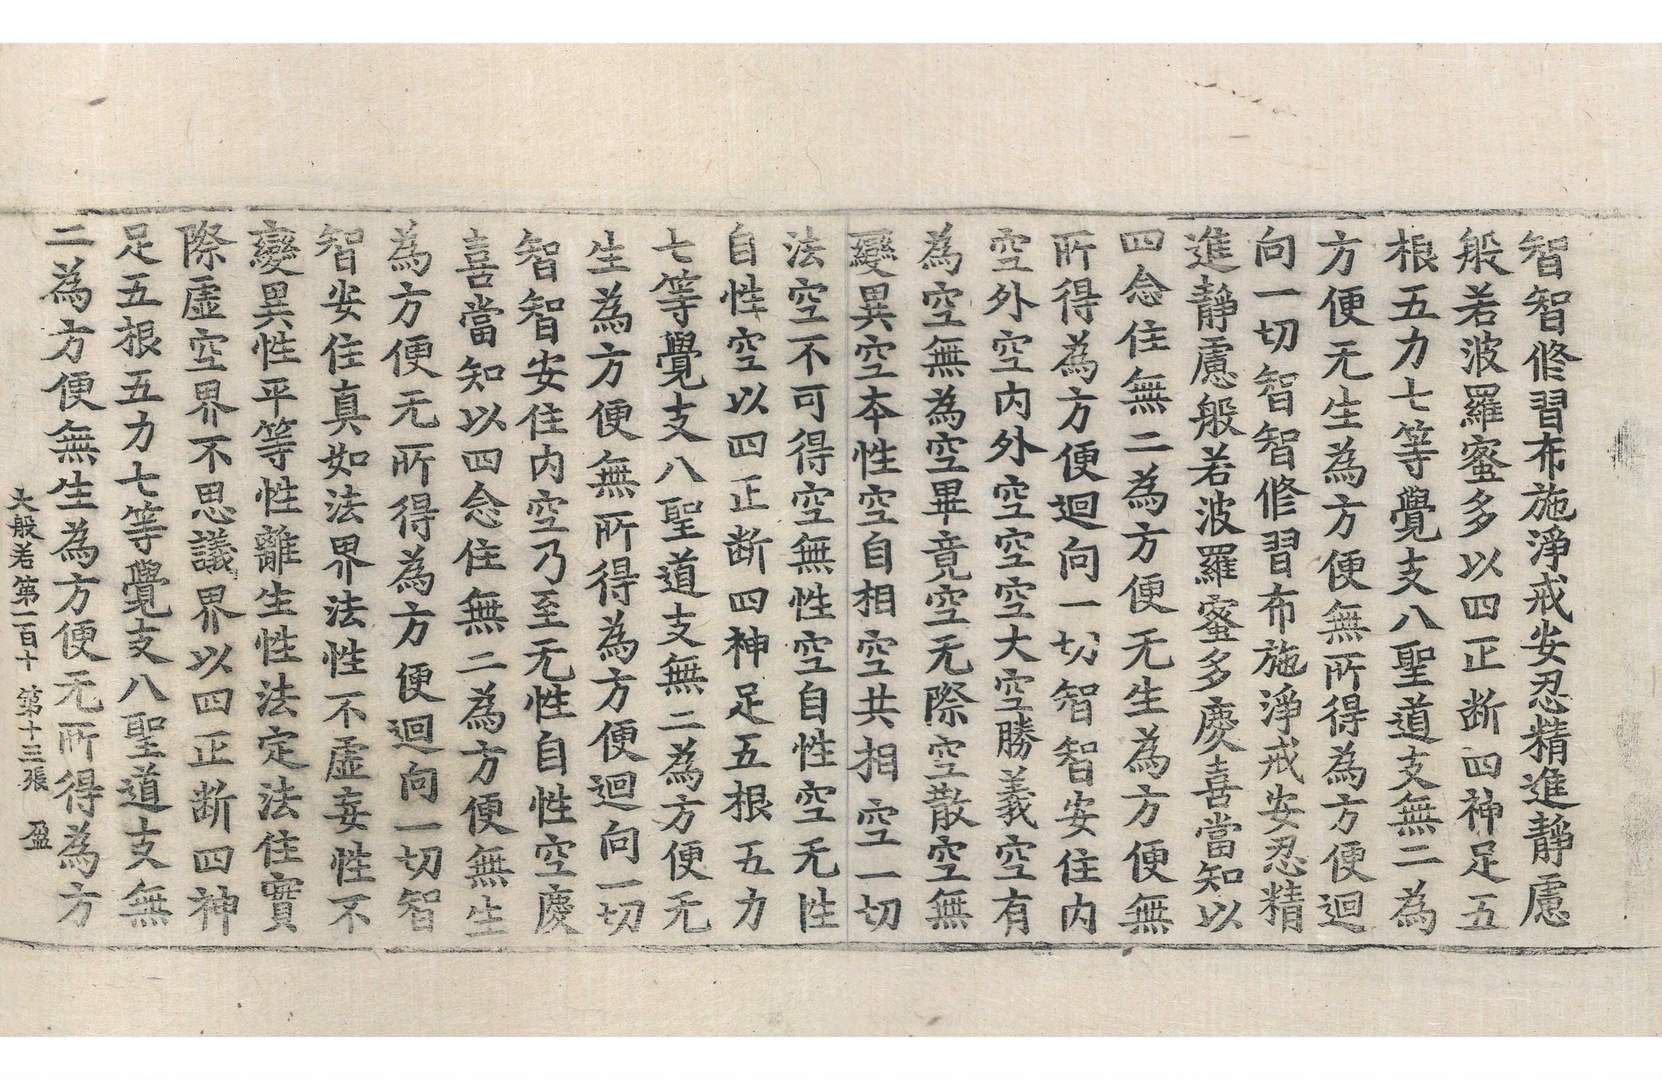 智智修習布施淨戒安忍精進靜慮
般若波羅蜜多以四正断四神足五
根五力七等覺支八聖道支無二為
方便无生為方便無所得為方便迴
向一切智智修習布施淨戒安忍精
進靜慮般若波羅蜜多慶喜當知以
四念住無二為方便无生為方便無
所得為方便迴向一切智智安住內
空外空內外空空空大空勝義空有
為空無為空畢竟空无際空散空無
變異空本性空自相空共相空一切
法空不可得空無性空自性空无性
自性空以四正断四神足五根五力
七等覺支八聖道支無二為方便无
生為方便無所得為方便迴向一切
智智安住內空乃至无性自性空慶
喜當知以四念住無二為方便無生
為方便无所得為方便迴向一切智
智安住真如法界法性不虛妄性不
變異性平等性離生性法定法住實
際虛空界不思議界以四正断四神
足五根五力七等覺支八聖道支無
二為方便無生為方便无所得為方
大般若第一百十 第十三張 盈